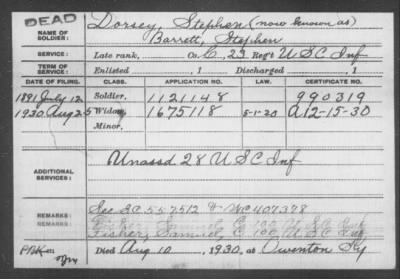 DEAD
NAME OF SOLDIER: Dorsey, Stephen (now known as)
Barrett, Stephen
SERVICE: Late rank, Co. C, 23 Reg't U S C Inf
TERM OF SERVICE: Enlisted , 1 Discharged , 1
DATE OF FILING. CLASS. APPLICATION NO. LAW. CERTIFICATE NO.
1891 July 12 Soldier, 1121148 990319
1930 Aug 25 Widow, 1675118 5-1-20 A12-15-30
Minor,
ADDITIONAL SERVICES: Unassd 28 U S C Inf
REMARKS: See 2C 557512 & WC 407378
REMARKS: Fisher, Samuel, E 100 U S C Inf
Died Aug 10, 1930, at Owenton Ky